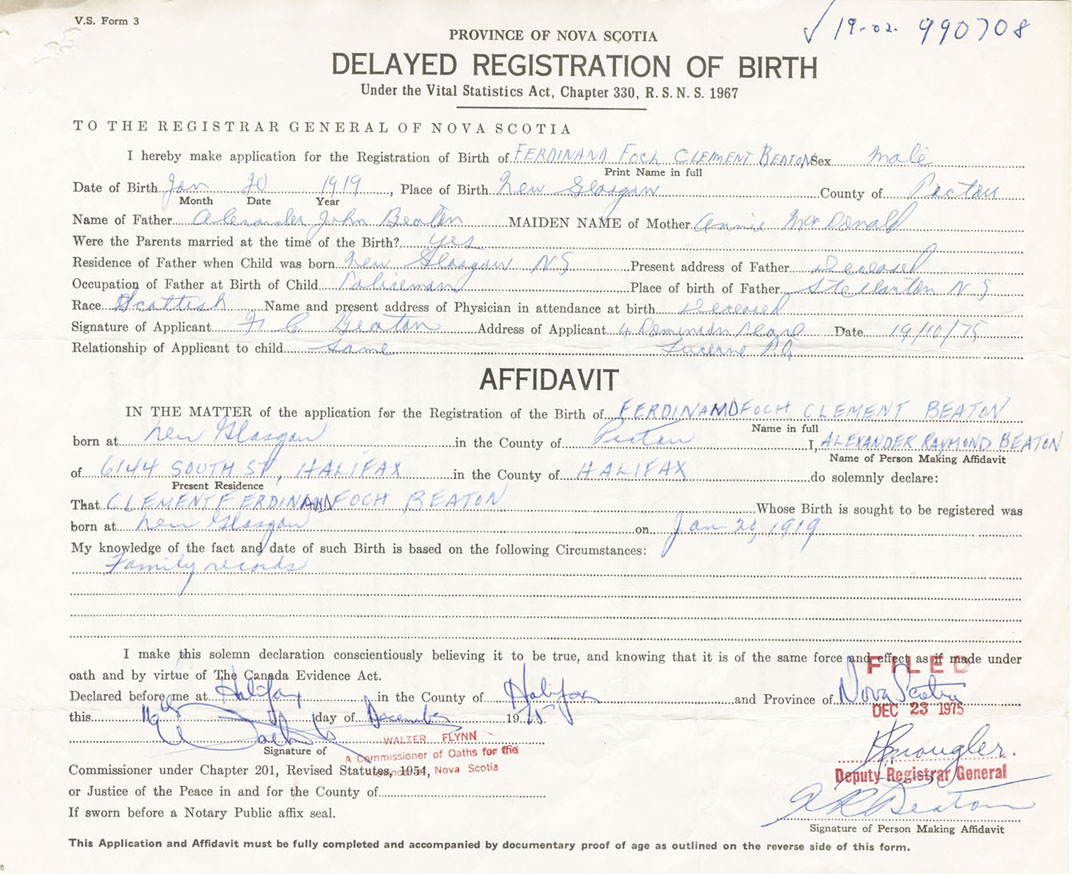 V.S. Form 3
√ 19-02. 990708
PROVINCE OF NOVA SCOTIA
DELAYED REGISTRATION OF BIRTH
Under the Vital Statistics Act, Chapter 330, R. S. N. S. 1967
TO THE REGISTRAR GENERAL OF NOVA SCOTIA
I hereby make application for the Registration of Birth of FERDINAND FOCH CLEMENT BEATON Sex Male
Print Name in full
Date of Birth Jan 20 1919, Place of Birth New Glasgow County of Pictou
Month Date Year
Name of Father Alexander John Beaton MAIDEN NAME of Mother Annie McDonald
Were the Parents married at the time of the Birth? yes
Residence of Father when Child was born New Glasgow NS Present address of Father Deceased
Occupation of Father at Birth of Child Policeman Place of birth of Father Stellarton N.S
Race Scottish Name and present address of Physician in attendance at birth Deceased
Signature of Applicant F C Beaton Address of Applicant 4 Dominion Date 19/10/75
Relationship of Applicant to child Same Lucerne P.Q.
AFFIDAVIT
IN THE MATTER of the application for the Registration of the Birth of FERDINAND FOCH CLEMENT BEATON
Name in full
born at New Glasgow in the County of Pictou I, ALEXANDER RAYMOND BEATON
Name of Person Making Affidavit
of 6144 SOUTH ST, HALIFAX in the County of HALIFAX do solemnly declare:
Present Residence
That CLEMENT FERDINAND FOCH BEATON Whose Birth is sought to be registered was
born at New Glasgow on Jan 20, 1919
My knowledge of the fact and date of such Birth is based on the following Circumstances:
Family records
I make this solemn declaration conscientiously believing it to be true, and knowing that it is of the same force and effect as if made under
oath and by virtue of The Canada Evidence Act.
FILED
Declared before me at Halifax in the County of Halifax and Province of Nova Scotia
DEC 23 1975
this day of December 1975
WALTER FLYNN
Signature of
A Commissioner of Oaths for the
Nova Scotia
Commissioner under Chapter 201, Revised Statutes, 1954,
Deputy Registrar General
or Justice of the Peace in and for the County of
A R Beaton
If sworn before a Notary Public affix seal.
Signature of Person Making Affidavit
This Application and Affidavit must be fully completed and accompanied by documentary proof of age as outlined on the reverse side of this form.